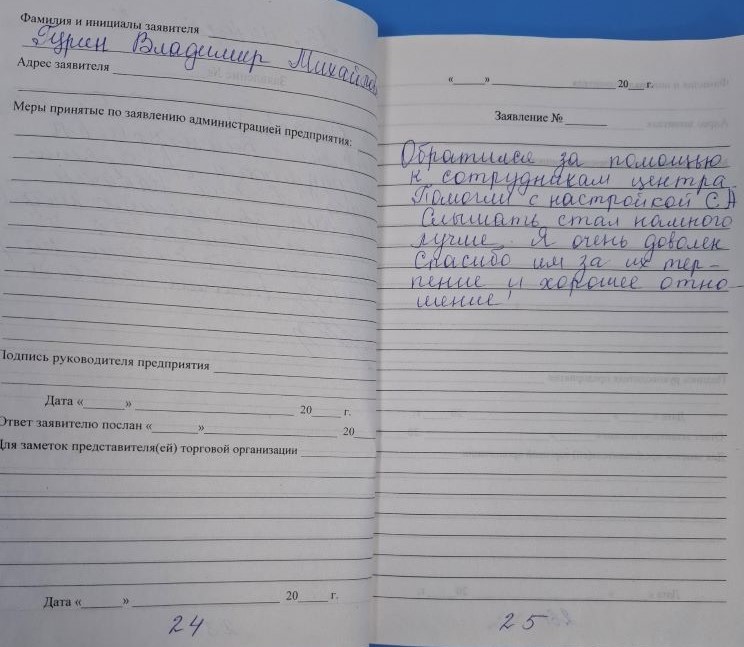 Фамилия и инициалы заявителя
Гурин Владимир Михайлов
Адрес заявителя
Меры принятые по заявлению администрацией предприятия:
Подпись руководителя предприятия
Дата «______» ______ 20____ г.
Ответ заявителю послан «______» ______ 20
Для заметок представителя(ей) торговой организации
Дата «______» ______ 20____ г.
24
«_____» ______ 20__ г.
Заявление № ______
Обратился за помощью
к сотрудникам центра.
Помогли с настройкой СА
Слышать стал намного
лучше. Я очень доволен
Спасибо им за их тер-
пение и хорошее отно-
шение!
25